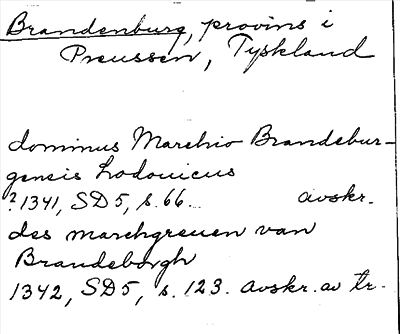 Brandenburg, provins i
Preussen, Tyskland
dominus Marchio Brandebur-
gensis Lodouicus
? 1341, SD 5, s. 66. avskr.
des marchgreuen van
Brandeborgh
1342, SD 5, s. 123. avskr. av tr.